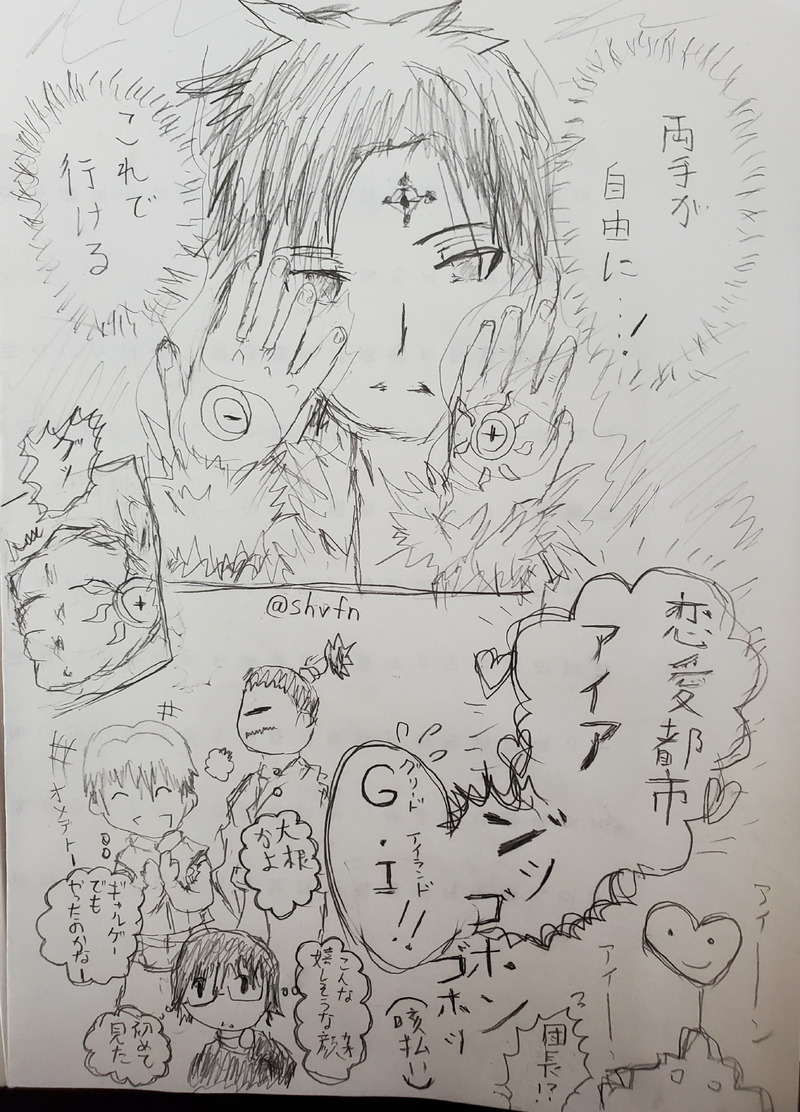 両手が
自由に…！
これで
行ける
グッ
@shvfn
恋愛都市
アイア
ンッ
ゴホン
ゴホッ
(咳払い)
G・I!!
グリード
アイランド
大根
かよ
オメデトー
ギャルゲー
でも
やったのかなー
こんな
嬉しそうな顔
初めて
見た
団長!?
アイーーン
アイーー